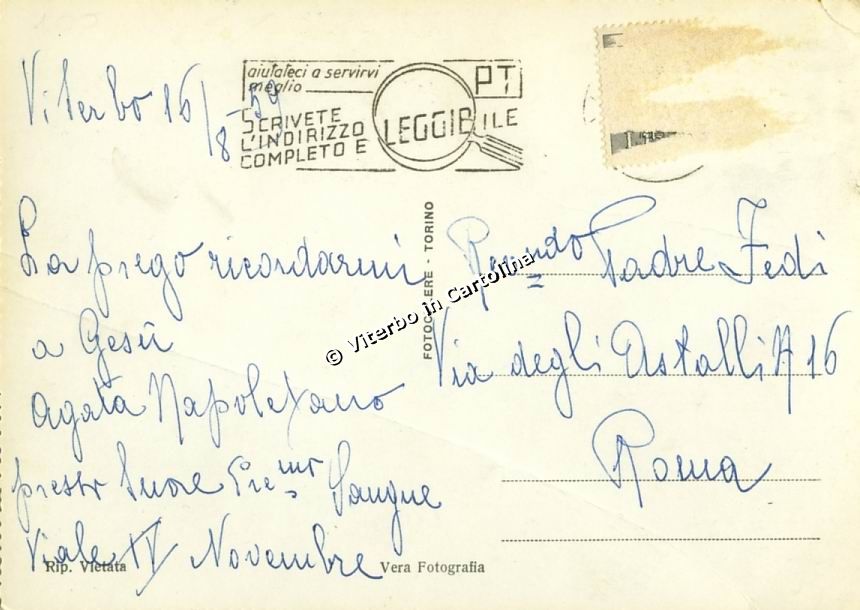 Viterbo 16/8-59
aiutateci a servirvi
meglio
PT
SCRIVETE
L'INDIRIZZO
COMPLETO E LEGGIBILE
La prego ricordarmi
a Gesù
Agata Napoletano
presso Suore Pre.mo Sangue
Viale IV Novembre
Rev.ndo Padre Fedi
Via degli Astalli 16
Roma
FOTOCELERE - TORINO
© Viterbo in Cartolina
Rip. Vietata
Vera Fotografia